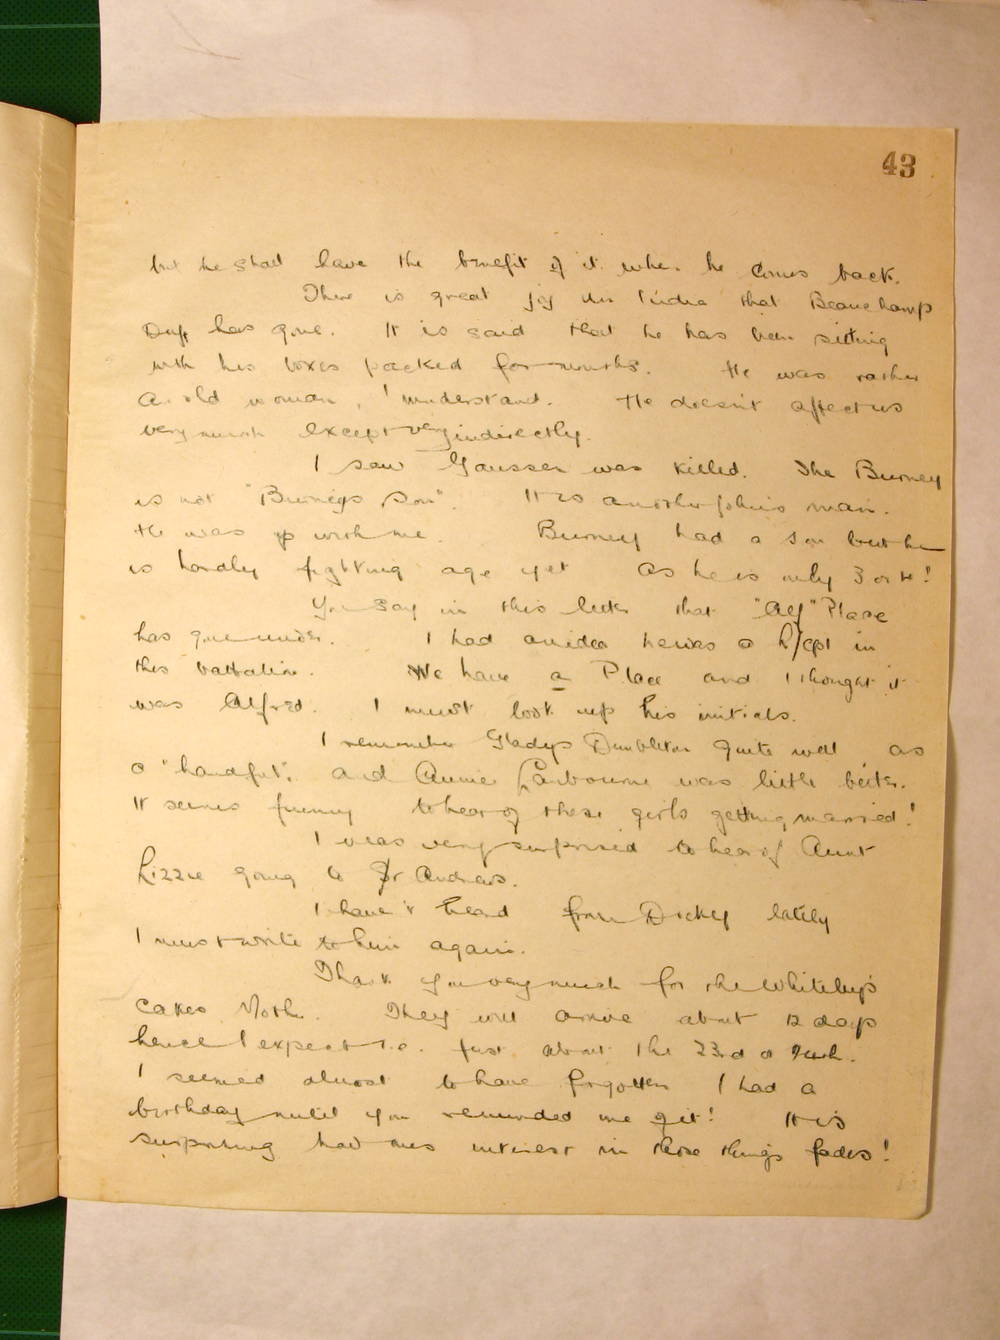 43
but he shall have the benefit of it when he comes back.
There is great joy in India that Beauchamp
Duff has gone. It is said that he has been sitting
with his boxes packed for months. He was rather
an old woman, I understand. He doesn't affect us
very much except very indirectly.
I saw Gaussen was killed. The Burney
is not "Burney's Son". It is another Johns man.
He was up with me. Burney had a son but he
is hardly fighting age yet as he is only 3 or 4!
You say in this letter that "Alf" Place
has gone under. I had an idea he was a L/Cpl in
this battalion. We have a Place and I thought it
was Alfred. I must look up his initials.
I remember Gladys Dumbleton quite well as
a "handful", and Annie was little better.
It seems funny to hear of these girls getting married!
I was very surprised to hear of Aunt
Lizzie going to St Andrews.
I haven't heard from Dicky lately
I must write to him again.
Thank you very much for the Whiteley's
cakes Mother. They will arrive about 12 days
hence I expect i.e. just about the 23rd or 24th.
I seemed almost to have forgotten I had a
birthday until you reminded me of it! It is
surprising how one's interest in these things fades!